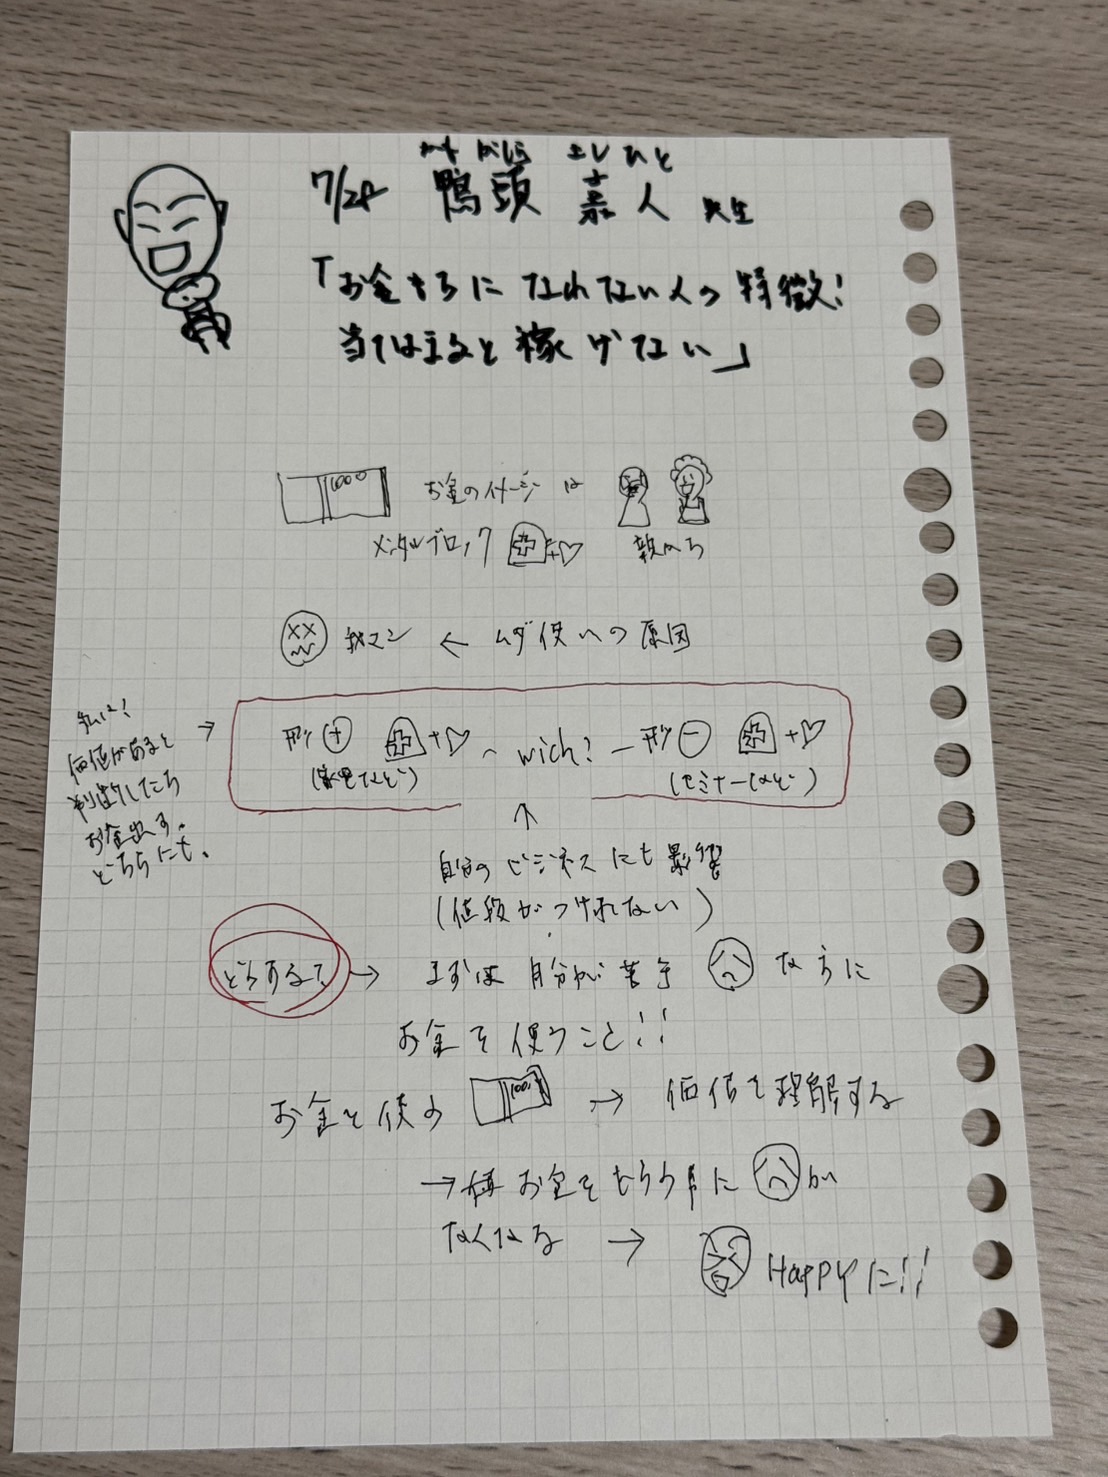 かもがしら よしひと
7/24 鴨頭 嘉人 先生
「お金もちになれない人の特徴!
当てはまると稼げない」
1000 お金のイメージは
メンタルブロック 親から
ガマン ← ムダ使いの原因
私は!
価値があると
判断したら
お金出す。
どちらにも。
→ 形 + + 〜 wich? − 形 − +
(家電など) (セミナーなど)
↑
自分のビジネスにも影響
(値段がつけれない)
どうする? → まずは自分が苦手な方に
お金を使うこと!!
お金を使う 1000 → 価値を理解する
→ お金をもらう時に が
なくなる → Happyに!!